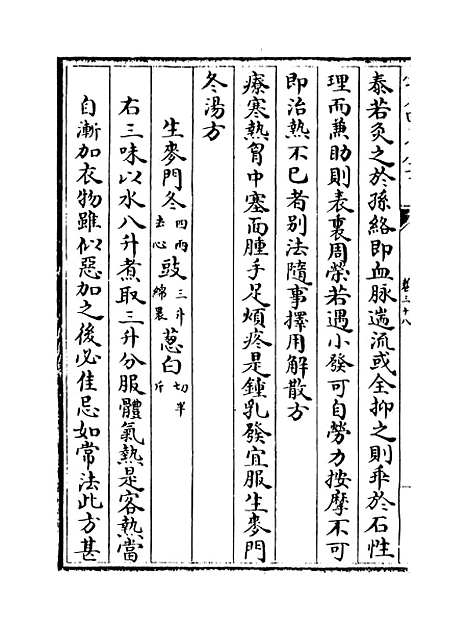 泰若灸之於孫絡即血脉遄流或全抑之則乖於石性
理而兼助則表裏周榮若遇小發可自勞力按摩不可
即治熱不已者别法隨事擇用解散方
療寒熱胷中塞而腫手足煩疼是鍾乳發宜服生麥門
冬湯方
生麥門冬四兩去心 豉三升綿裹 葱白切半斤
右三味以水八升煮取三升分服體氣熱是客熱當
自漸加衣物雖似惡加之後必佳忌如常法此方甚
卷三十八